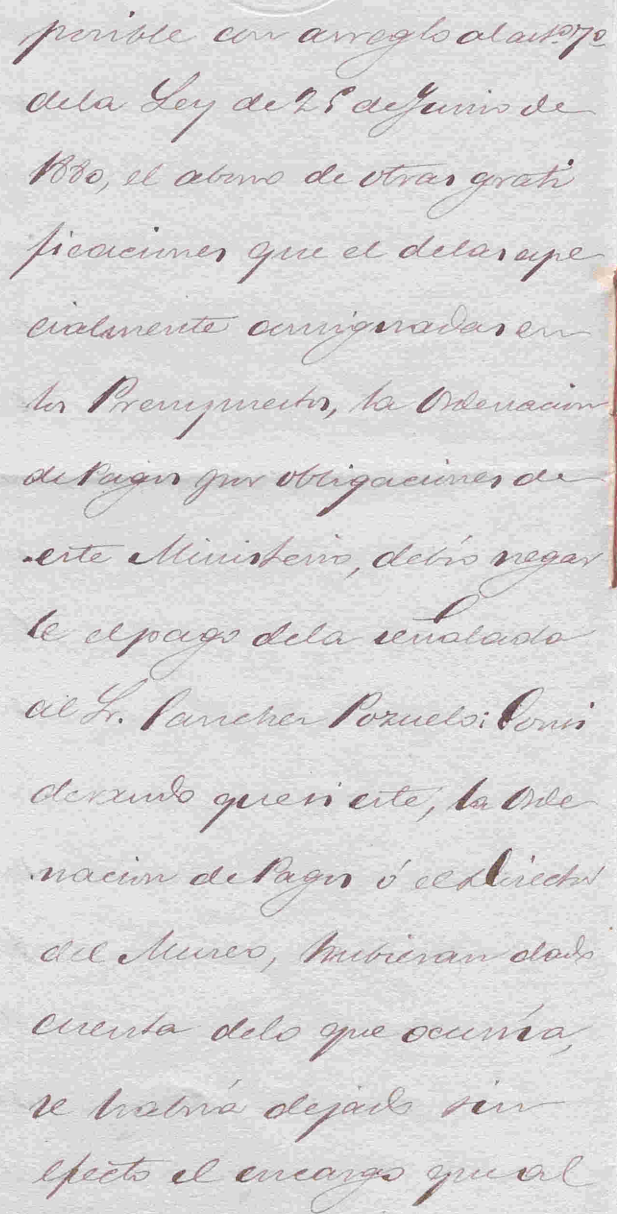 posible con arreglo al artº 7º
de la Ley de 25 de Junio de
1880, el abono de otras grati
ficaciones que el de las espe
cialmente consignadas en
los Presupuestos, la Ordenacion
de Pagos por obligaciones de
este Ministerio, debió negar
le el pago de la señalada
al Sr. Sanchez Pozuelo; Consi
derando que si este, la Orde
nacion de Pagos ó el Director
del Museo, hubieran dado
cuenta de lo que ocurria,
se habria dejado sin
efecto el encargo que al